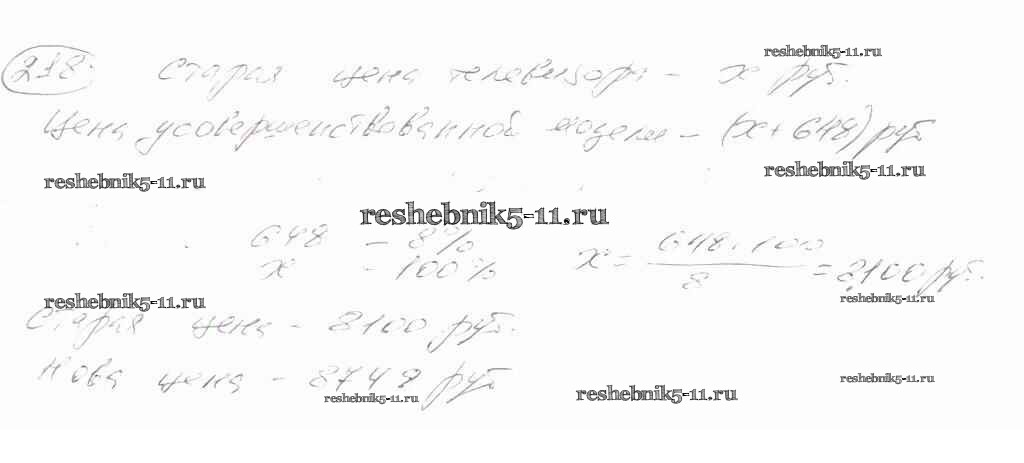 reshebnik5-11.ru
218. Старая цена телевизора – x руб.
Цена усовершенствованной модели – (x + 648) руб
reshebnik5-11.ru
reshebnik5-11.ru
reshebnik5-11.ru
648 – 8%
x – 100%
x = 648 · 100 / 8 = 8100 руб.
reshebnik5-11.ru
reshebnik5-11.ru
Старая цена – 8100 руб.
Нова цена – 8748 руб
reshebnik5-11.ru
reshebnik5-11.ru
reshebnik5-11.ru